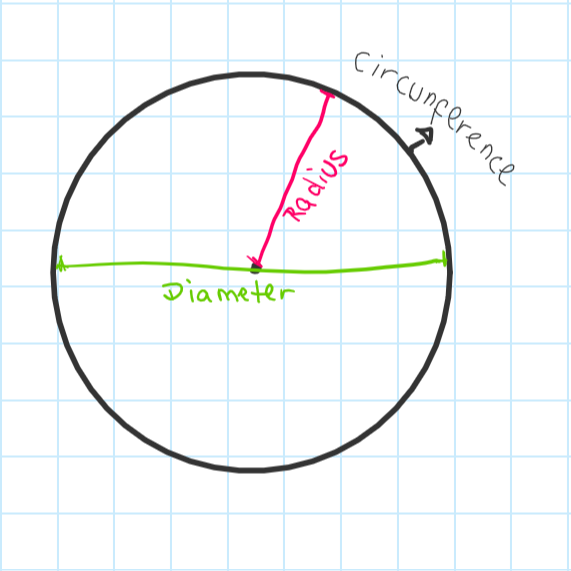 Circunference
Radius
Diameter